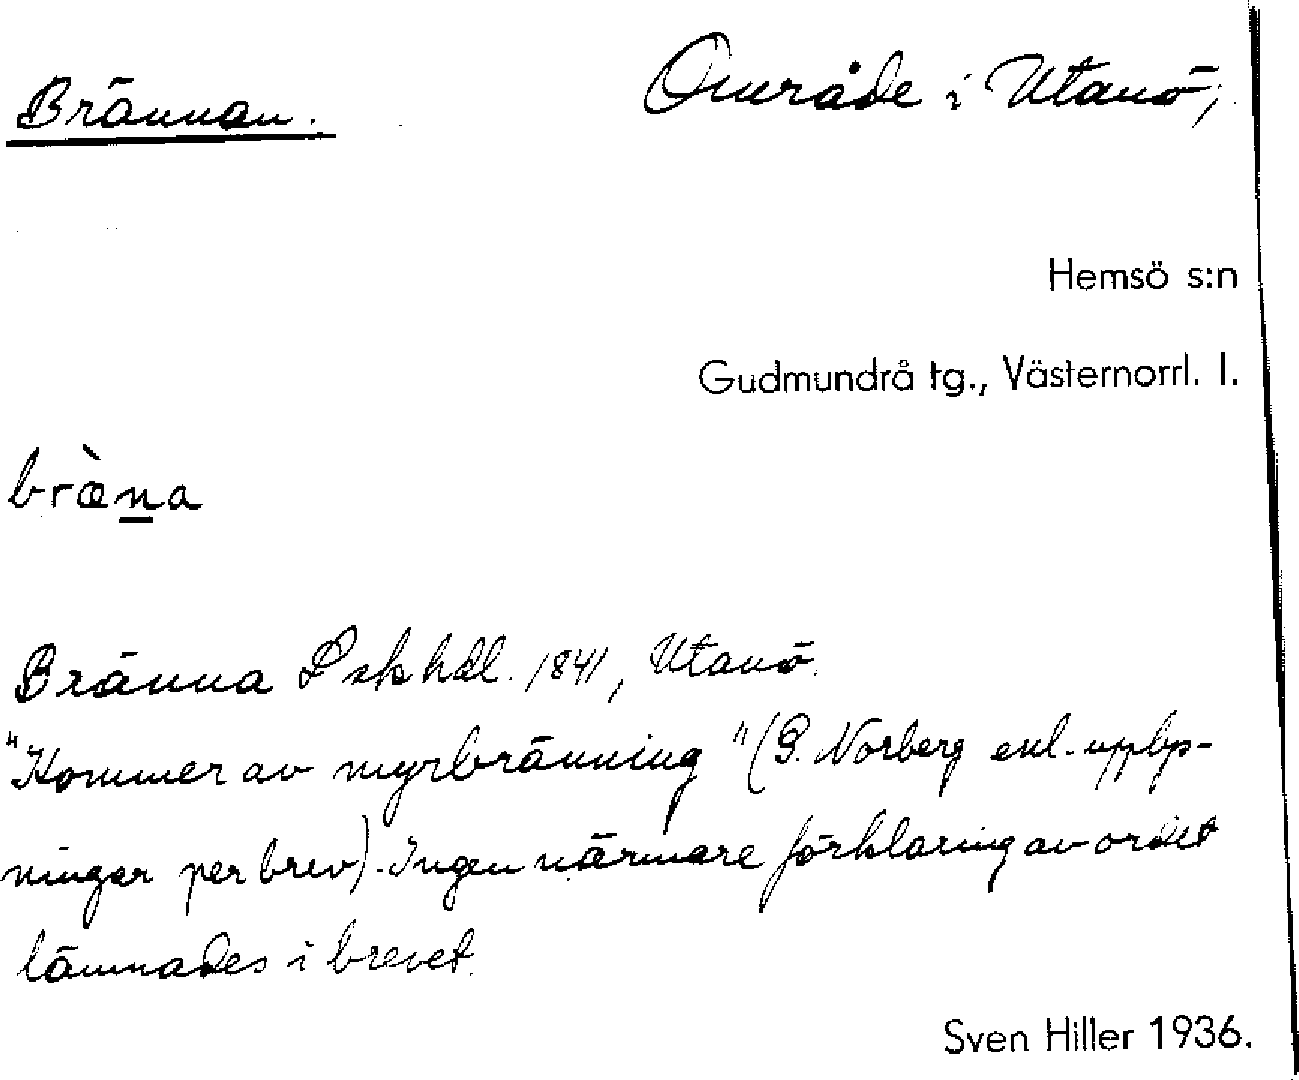 Brännan.
Område i Utanö,
Hemsö s:n
Gudmundrå tg., Västernorrl. l.
bræ̀na
Bränna Lskhdl. 1841, Utanö.
"Kommer av myrbränning" (G. Norberg enl. upplys-
ningar per brev). Ingen närmare förklaring av ordet
lämnades i brevet.
Sven Hiller 1936.